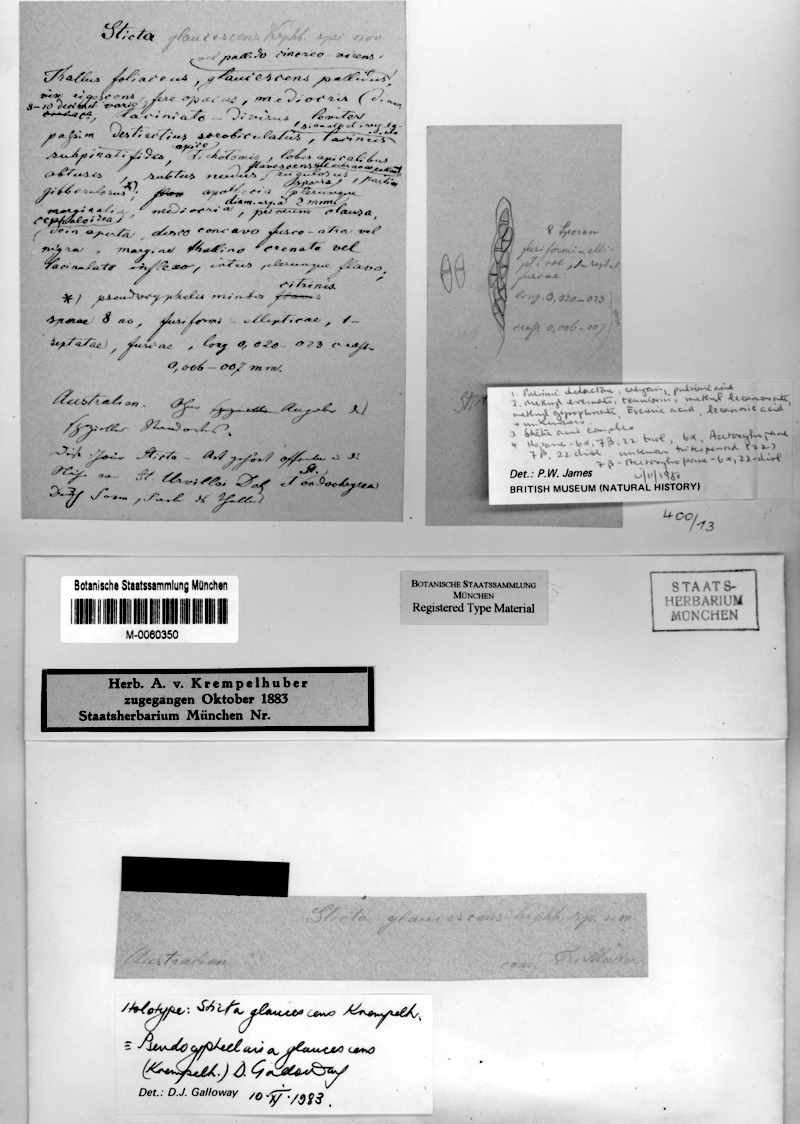 Sticta glaucescens Krphb. spi nov
vel pallido cinereo-virens,
Thallus foliaceus, glaucescens pallidus,
vix rigescens, fere opacus, mediocris (diam
8-10 decimet varie
laciniato-divisus leviter
passim destinctius scrobiculatus, laciniis
subpinatifides, apice tichotomis, lobis apicalibus
obtusis, subtus nudus, rugulosus,
sparsa, partim
gibberulosus*); apothecia plerumque
diam. usque 2 mm,
marginalia, mediocria, primum clausa,
cephaloidea,
dein aperta, disco concavo fusco-atra vel
nigra, margine thallino crenato vel
lacinulato inflexo, intus plerumque flavo;
citrinis
*) pseudocyphelis minutis
sporae 8 no, fusiformi-ellipticae, 1-
septatae, fuscae, long 0,020-023 crass.
0,006-007 m.m.
Australien. Ohne spezieller Angabe des
speziellen Standortes.
Diese schöne Sticta-Art gehört offenbar in die
St. Urvillei Del. et St. ordochroysea
8 sporae
fusiformi-elli-
pticae, 1-septat
fuscae
long. 0,020-023
crass 0,006-007
1. Pulvinic dilactone, calycin, pulvinic acid
2. Methyl evernate, tenuiorin, methyl lecanorate,
methyl gyrophorate, Evernic acid, lecanoric acid
+ unknowns
3 Stictic acid complex
4 Hopane-6α, 7β, 22 triol, 6α, Acetoxyhopane
7β, 22 diol unknown triterpenoid (22)
7β-Acetoxyhopane-6α, 22-diol
Det.: P.W. James
BRITISH MUSEUM (NATURAL HISTORY)
400/13
Botanische Staatssammlung München
M-0060350
BOTANISCHE STAATSSAMMLUNG
MÜNCHEN
Registered Type Material
STAATS-
HERBARIUM
MÜNCHEN
Herb. A. v. Krempelhuber
zugegangen Oktober 1883
Staatsherbarium München Nr.
Sticta glaucescens Krphb. sp. nov
Australien com. Fr. Müller
Holotype: Sticta glaucescens Krempelh.
≡ Pseudocyphellaria glaucescens
(Krempelh.) D. Galloway
Det.: D.J. Galloway 10.XI.1983.